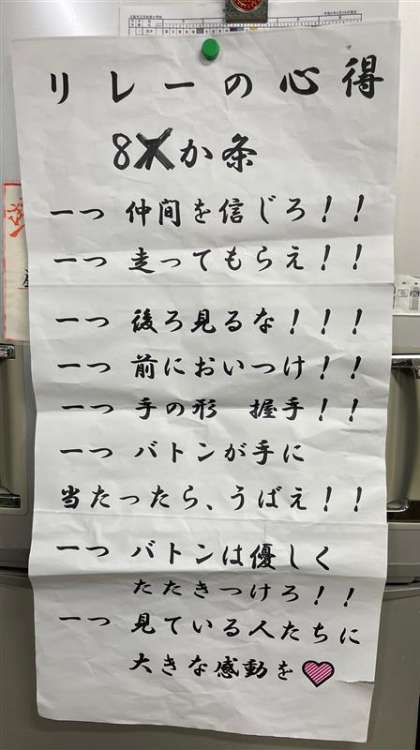 リレーの心得
8か条
一つ 仲間を信じろ!!
一つ 走ってもらえ!!
一つ 後ろ見るな!!!
一つ 前においつけ!!
一つ 手の形 握手!!
一つ バトンが手に
当たったら、うばえ!!
一つ バトンは優しく
たたきつけろ!!
一つ 見ている人たちに
大きな感動を